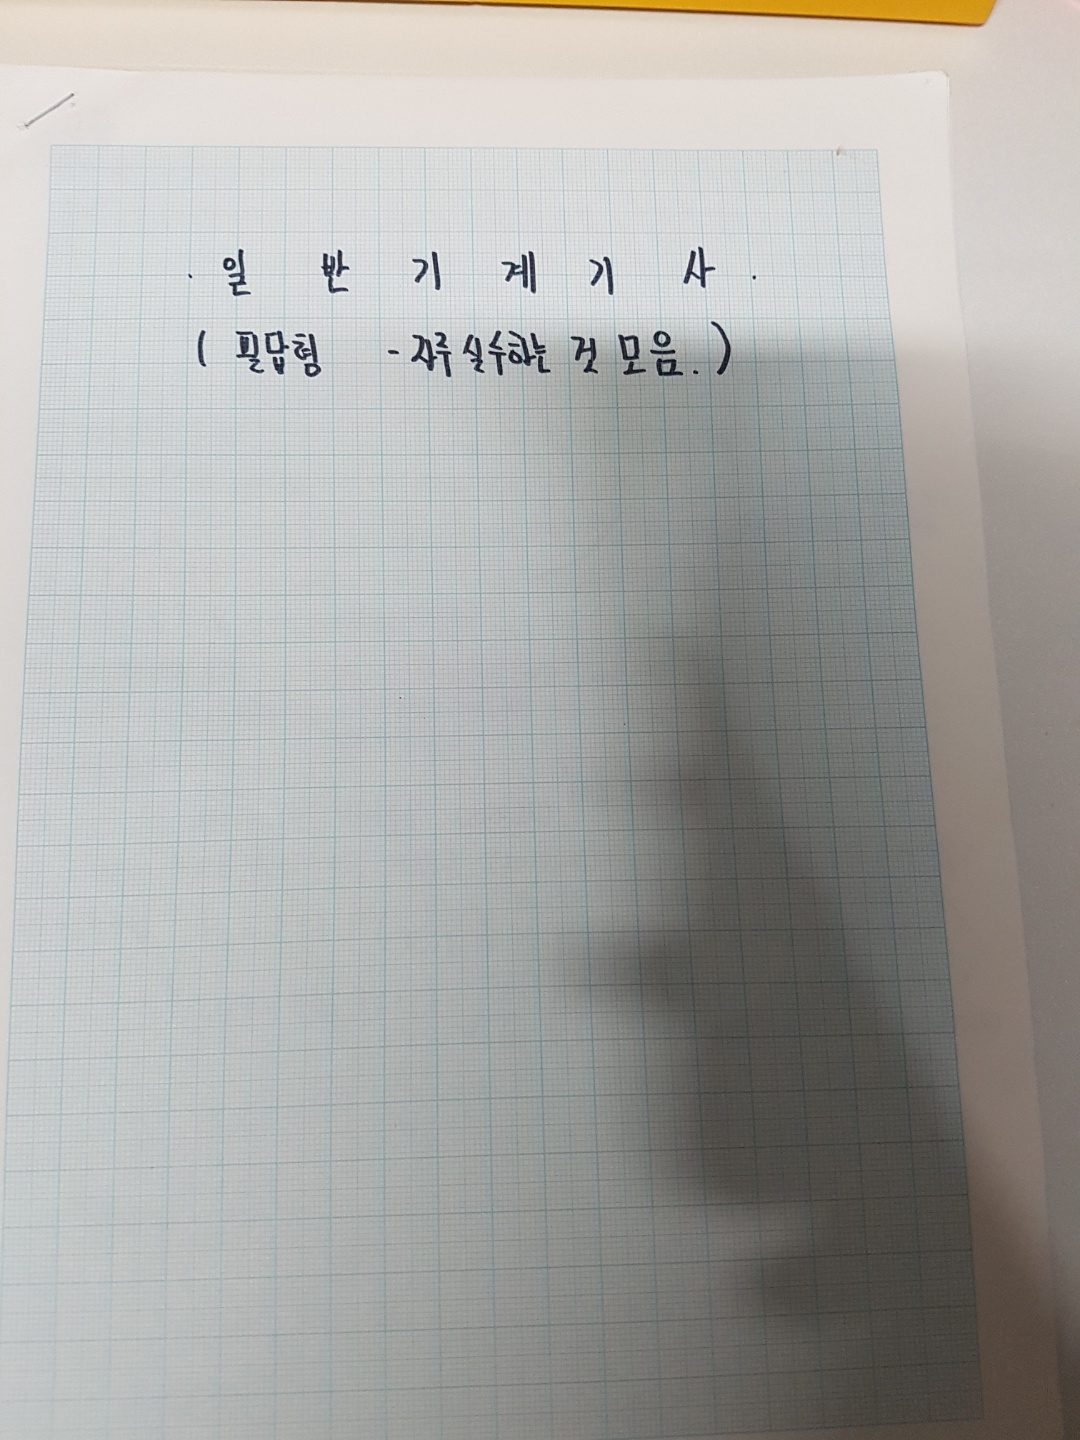 · 일 반 기 계 기 사 ·
( 필답형 - 자주 실수하는 것 모음. )